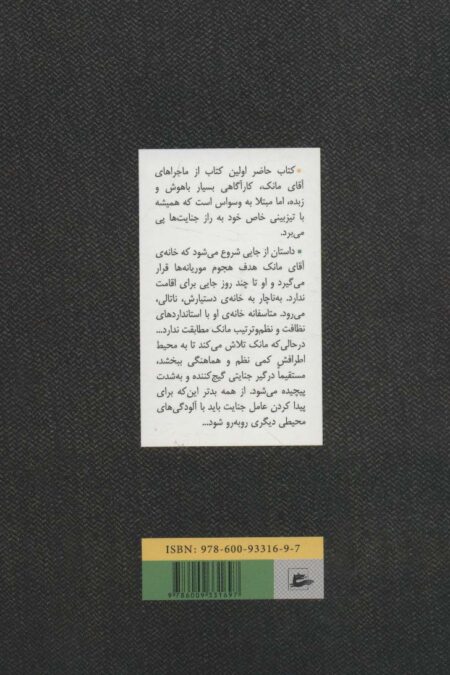 • کتاب حاضر اولین کتاب از ماجراهای
آقای مانک، کارآگاهی بسیار باهوش و
زبده، اما مبتلا به وسواس است که همیشه
با تیزبینی خاص خود به راز جنایت‌ها پی
می‌برد.
• داستان از جایی شروع می‌شود که خانه‌ی
آقای مانک هدف هجوم موریانه‌ها قرار
می‌گیرد و او تا چند روز جایی برای اقامت
ندارد. به‌ناچار به خانه‌ی دستیارش، ناتالی،
می‌رود. متاسفانه خانه‌ی او با استانداردهای
نظافت و نظم‌وترتیب مانک مطابقت ندارد...
درحالی‌که مانک تلاش می‌کند تا به محیط
اطرافش کمی نظم و هماهنگی ببخشد،
مستقیماً درگیر جنایتی گیج‌کننده و به‌شدت
پیچیده می‌شود. از همه بدتر این‌که برای
پیدا کردن عامل جنایت باید با آلودگی‌های
محیطی دیگری روبه‌رو شود...
ISBN: 978-600-93316-9-7
9 786009 331697